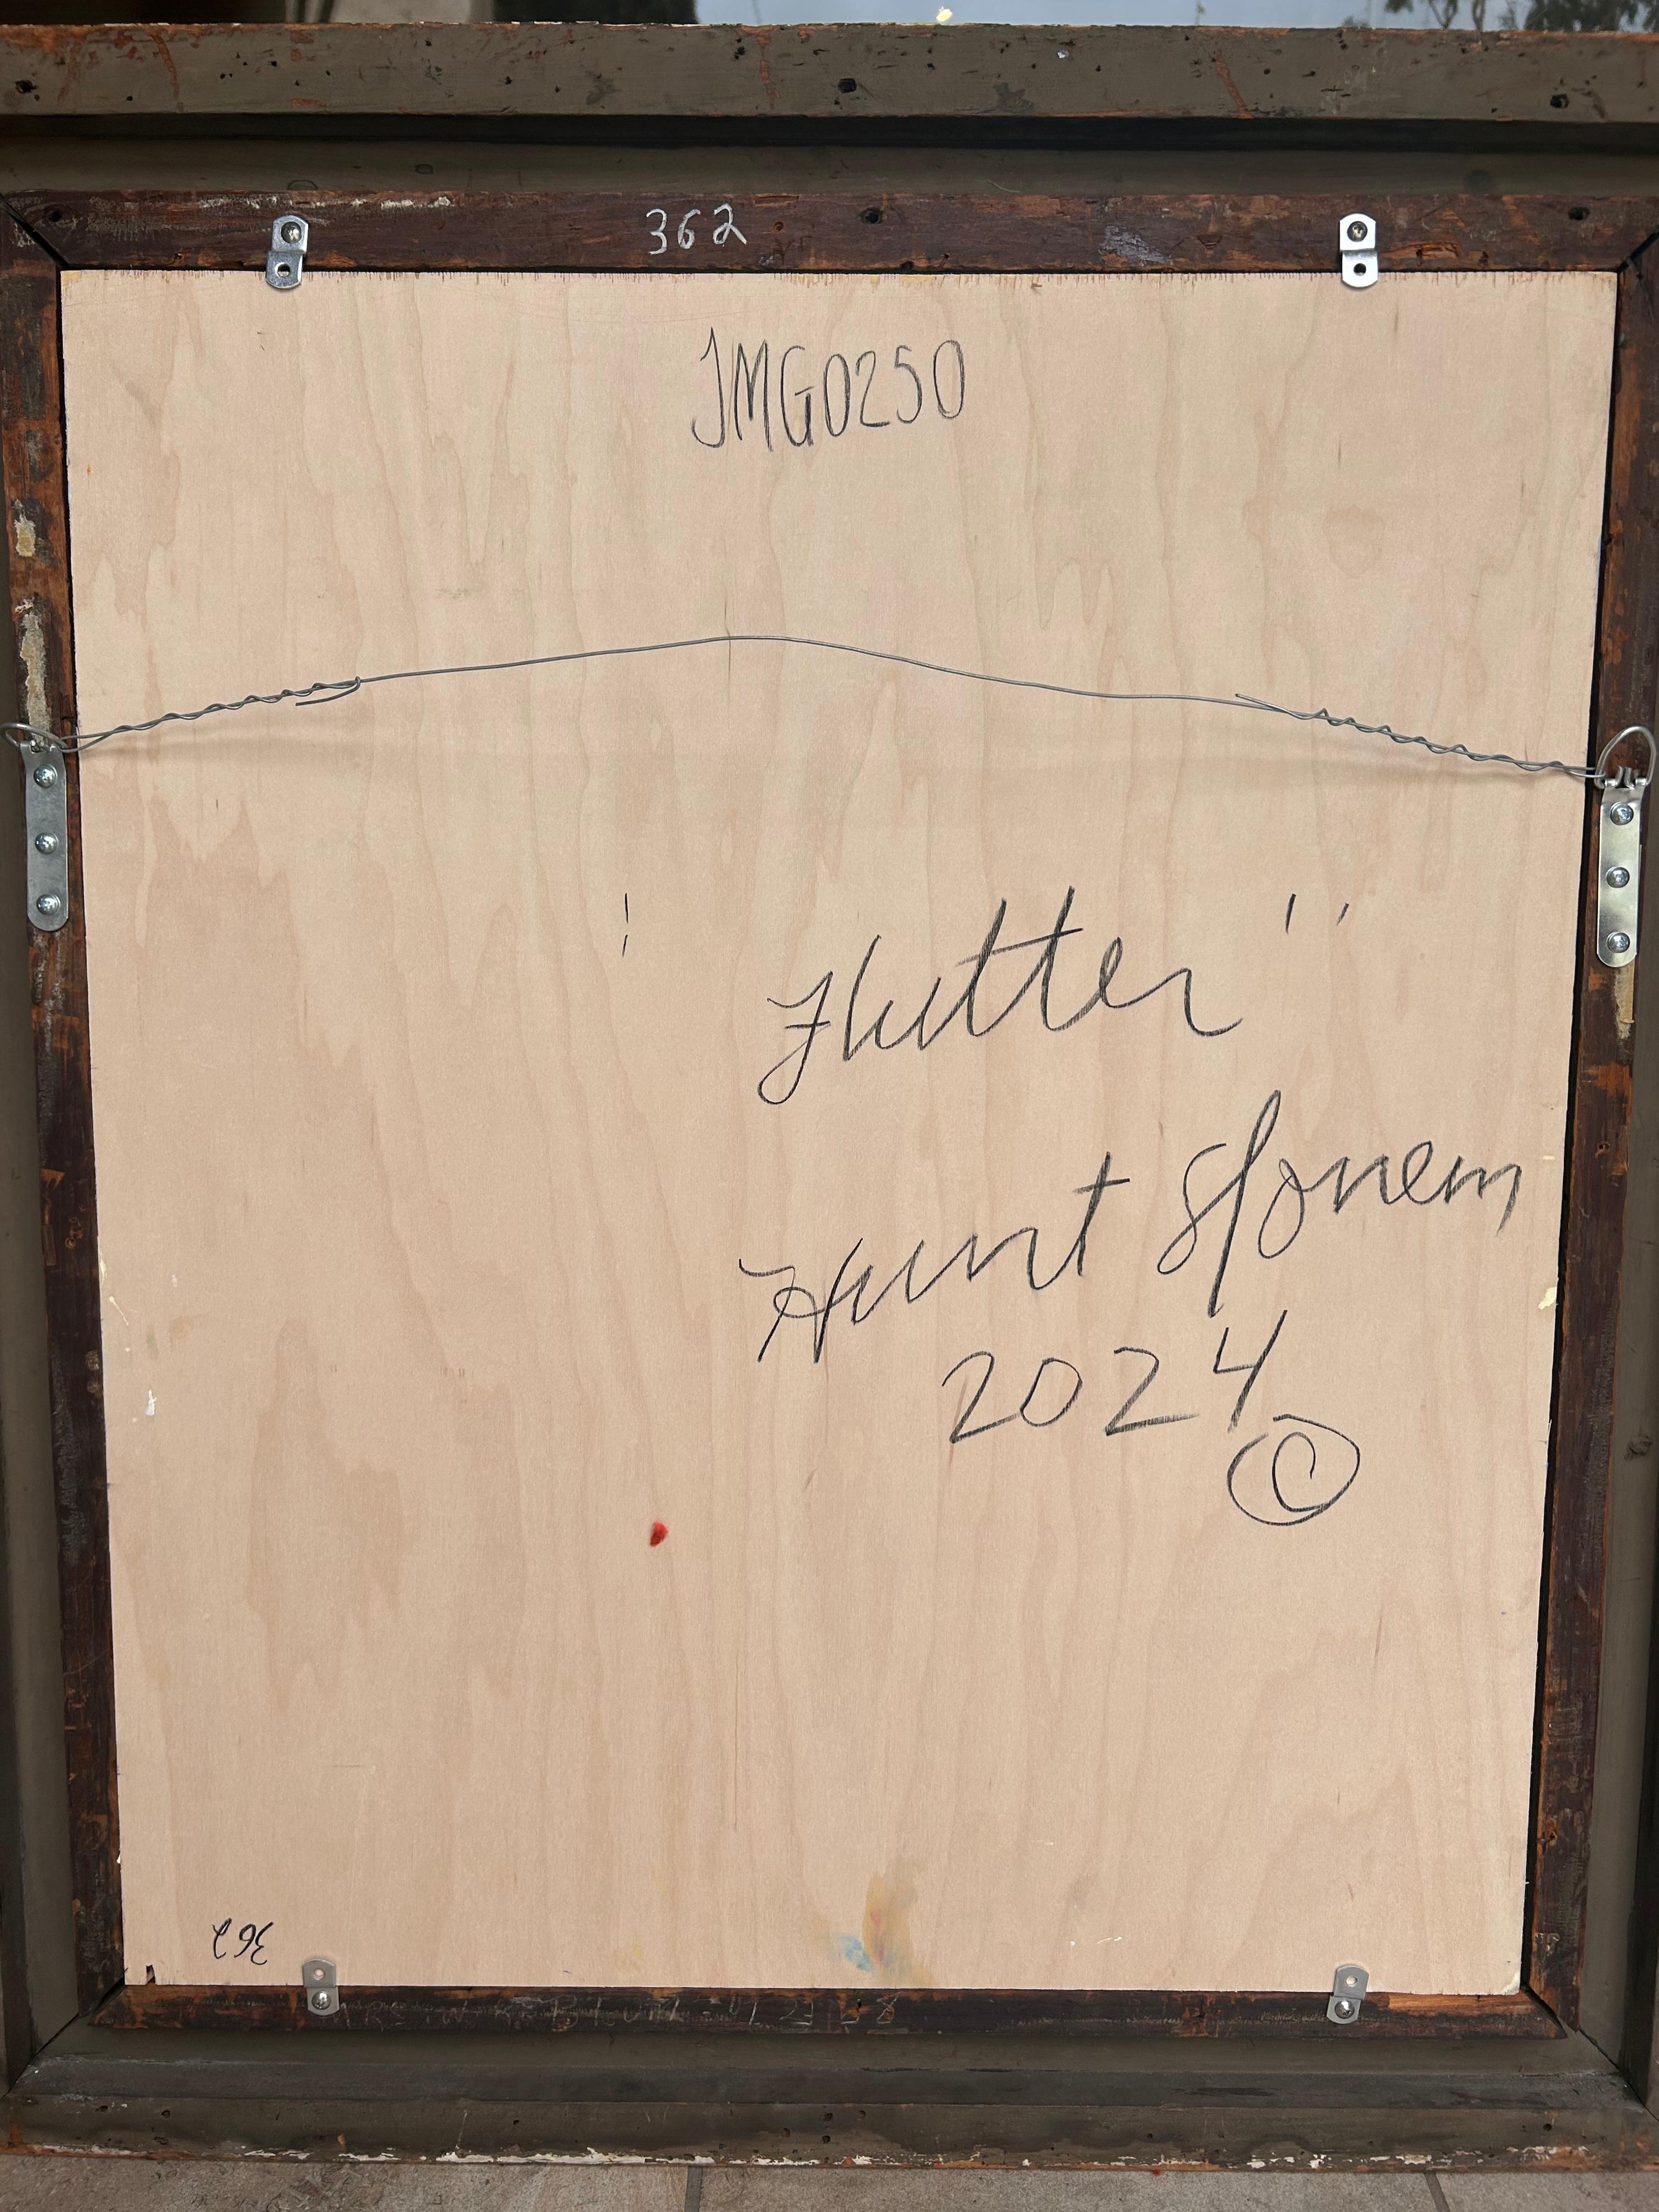 362
JMG0250
"Flutter"
Hunt Slonem
2024
©
362